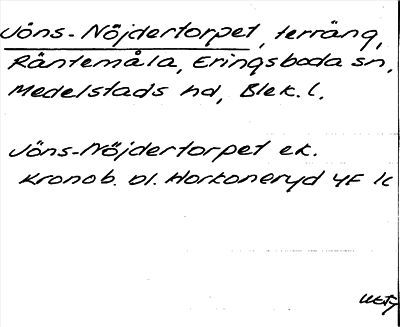 Jöns-Nöjdertorpet, terräng,
Räntemåla, Eringsboda sn,
Medelstads hd, Blek. l.
Jöns-Nöjdertorpet ek.
Kronob. bl. Horkoneryd 4F 1c